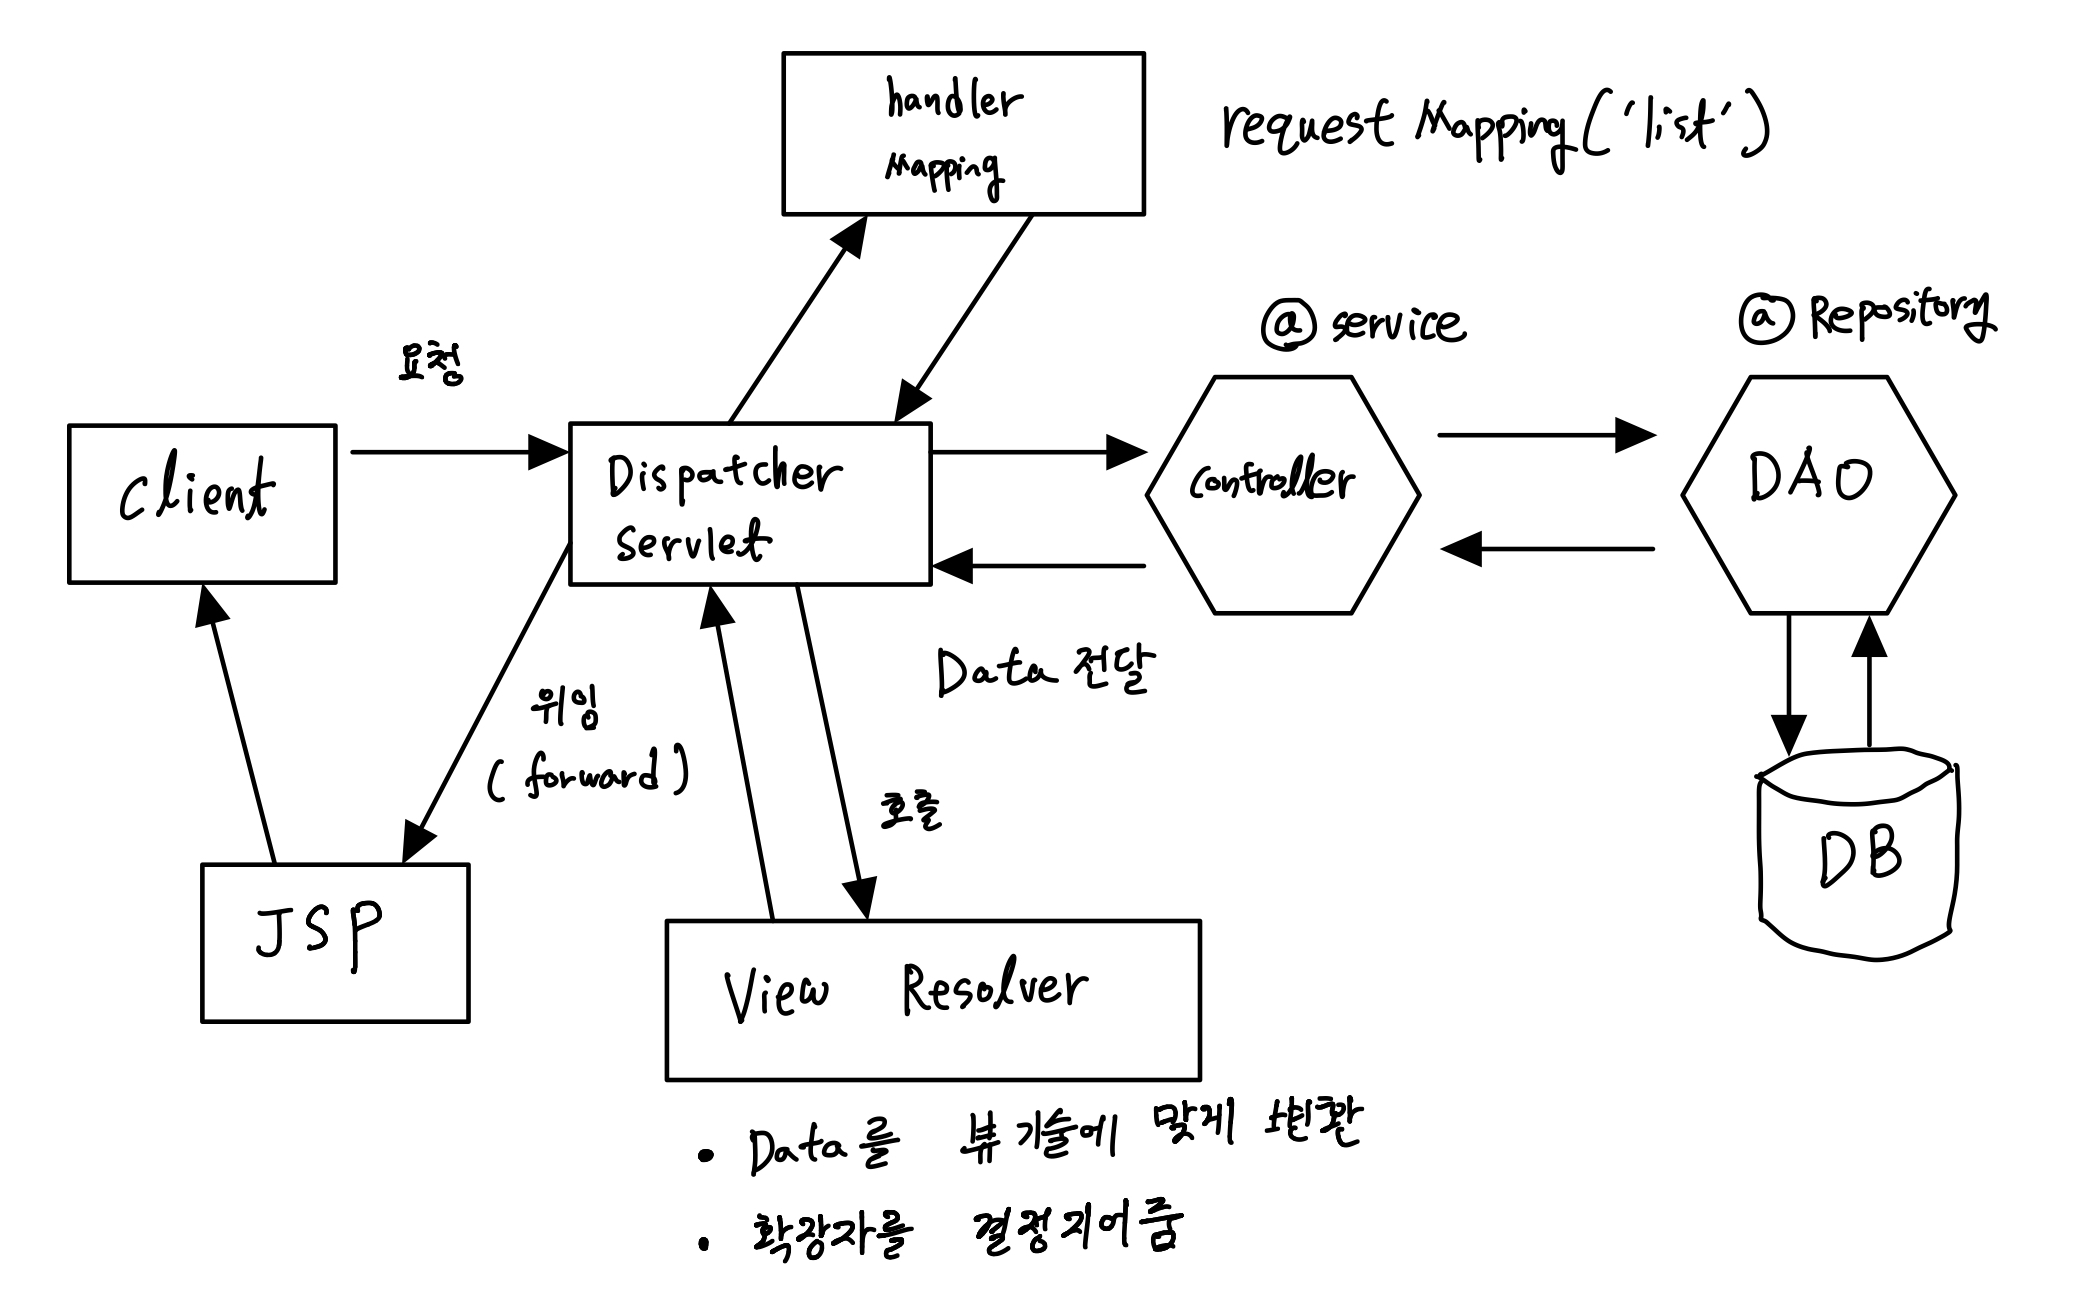 handler
Mapping
request Mapping('list')
@ service
@ Repository
요청
Client
Dispatcher
Servlet
Controller
DAO
Data 전달
위임
(forward)
호출
DB
JSP
View Resolver
• Data를 뷰 기술에 맞게 변환
• 확장자를 결정지어줌